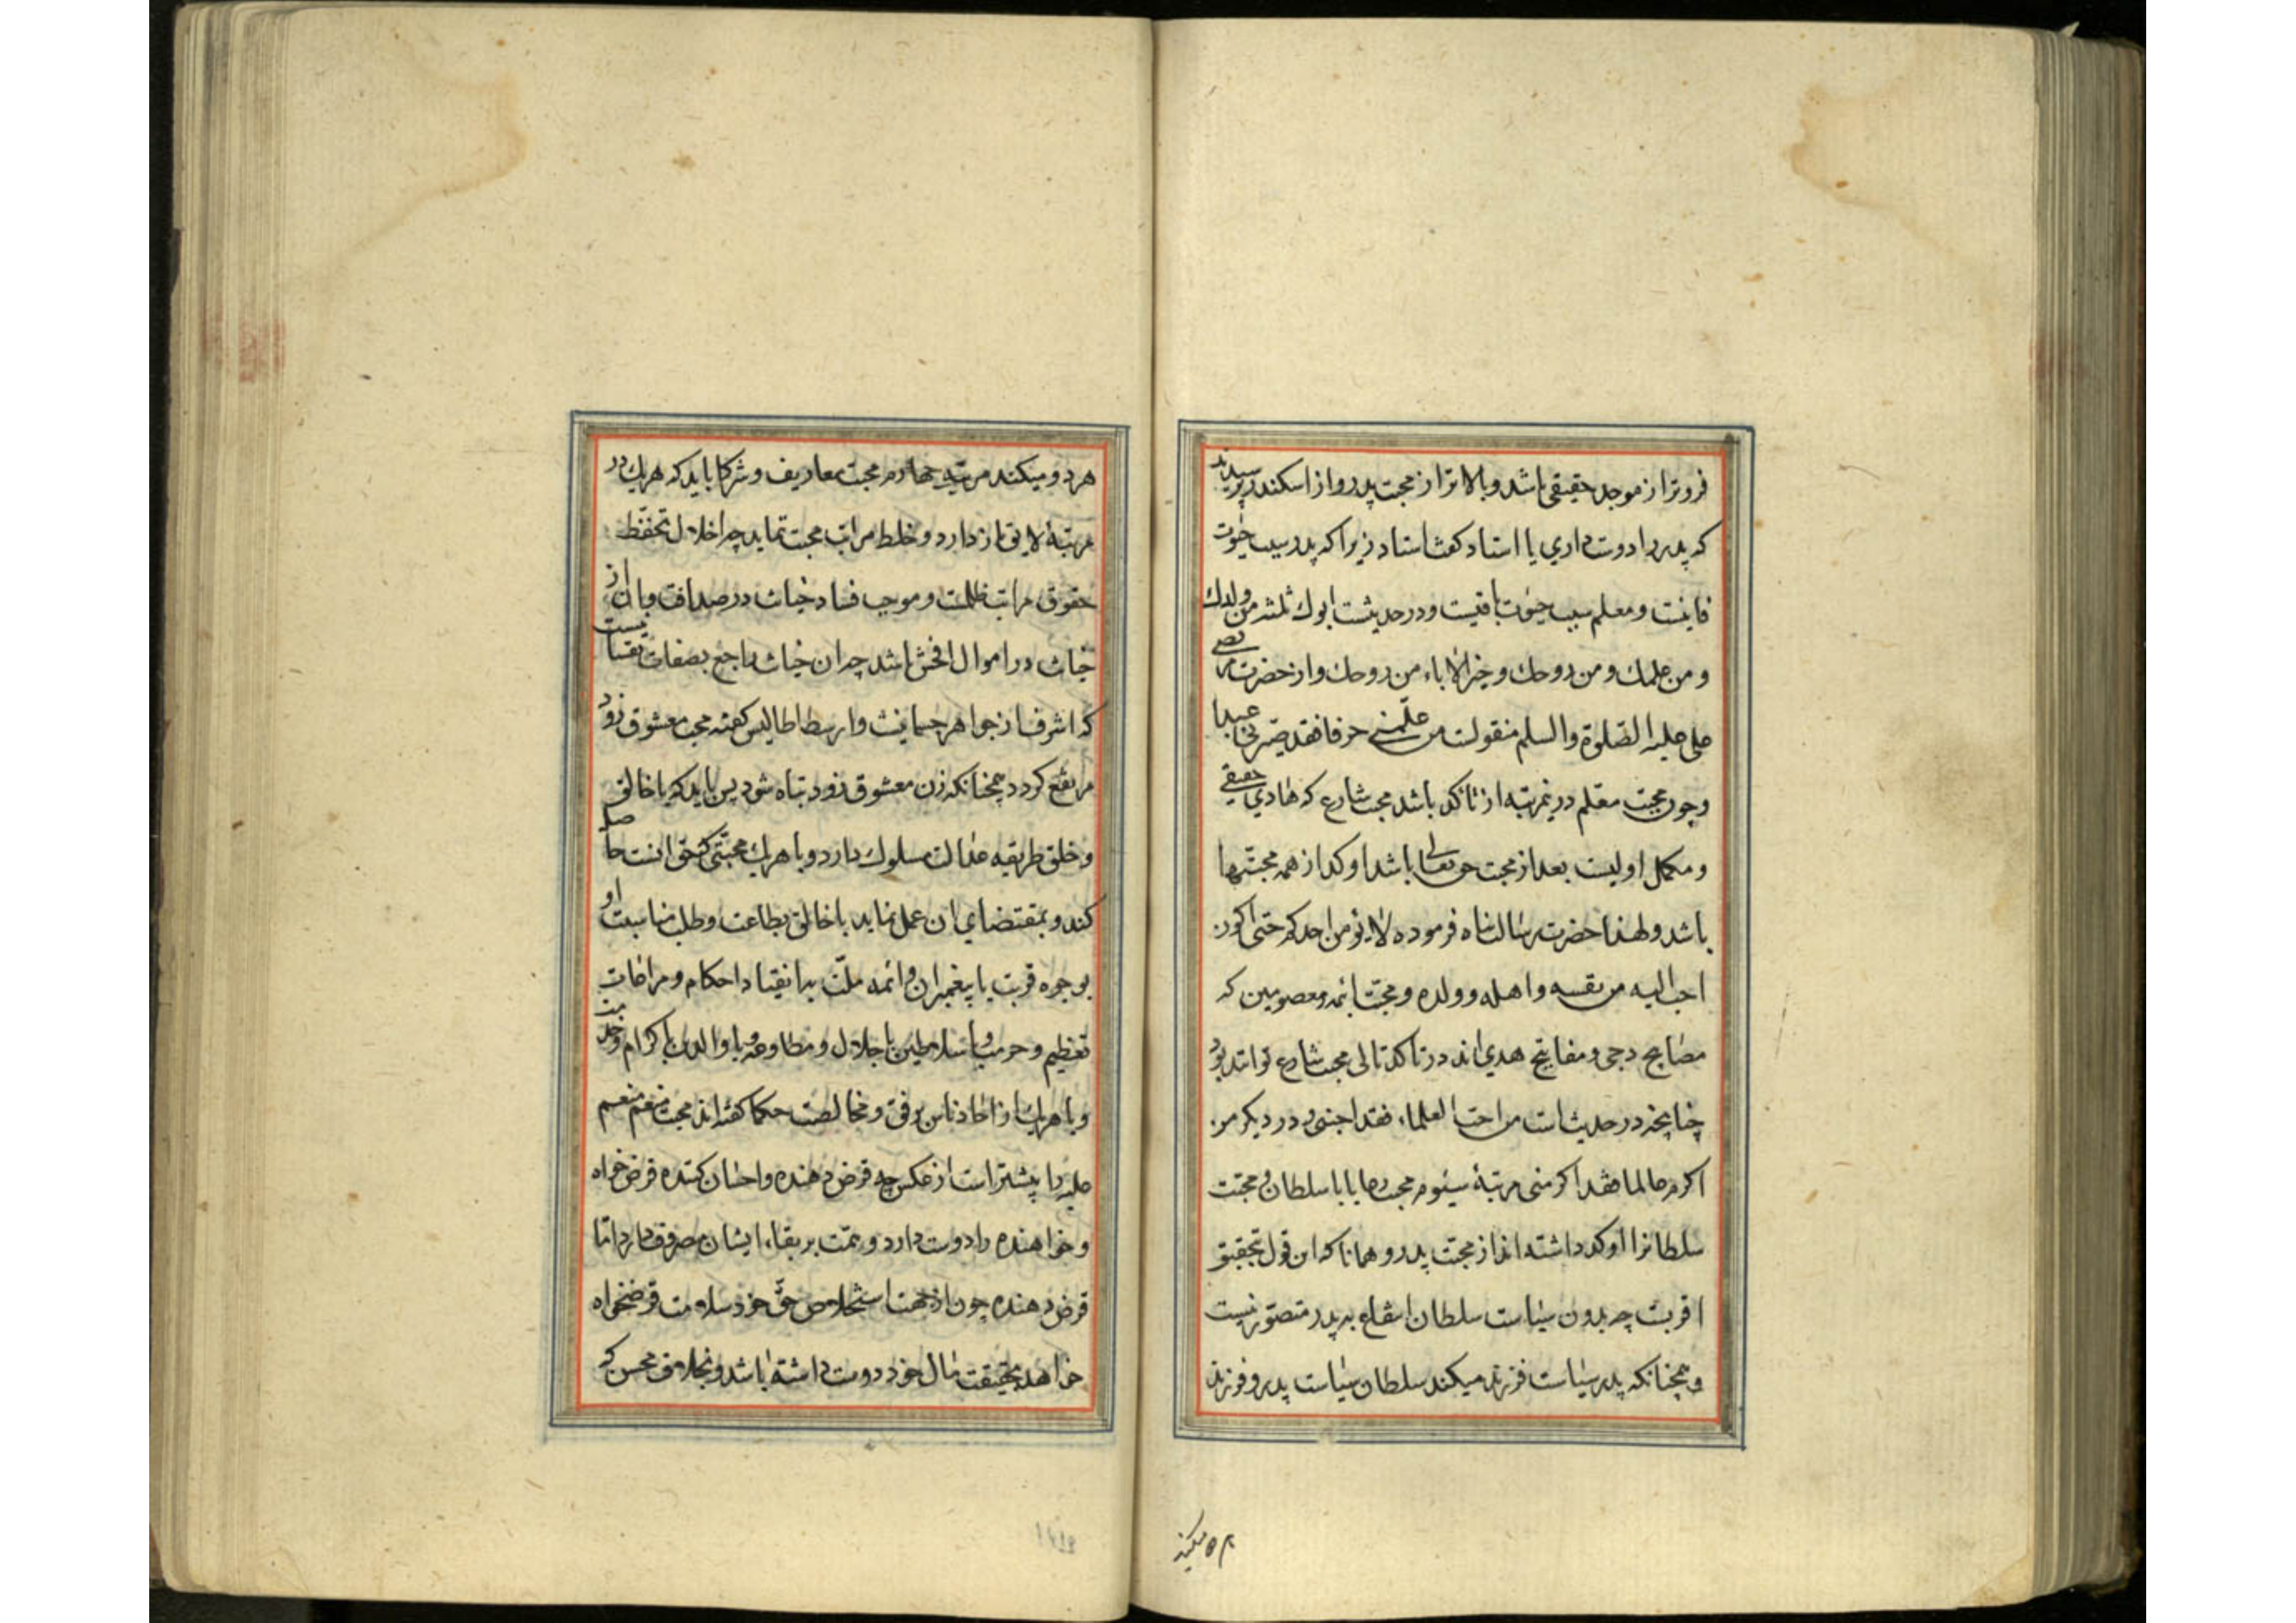 فروتر از موجد حقیقی باشد و بالاتر از محبت پدر و از اسکندر پرسیدند
که پدر را دوست داری یا استاد کفت استاد زیرا که پدر سبب حیوت
فانیست و معلم سبب حیوت باقیست و در حدیثست ابوك ثلثه من ولدك
و من علمك و من زوجك و خیر الاباء من و از حضرت مرتضی
علی علیه الصلوة والسلم منقولست من علمنی حرفا فقد صیرنی عبدا
و چون محبت معلم درین مرتبه از تاکد باشد محبت شارع که هادی حقیقی
و مکمل اولیست بعد از محبت حق تعالی باشد اوکد از همه محبتها
باشد و لهذا حضرت رسالت پناه فرموده لا یؤمن احدکم حتی اکون
احب الیه من نفسه و اهله و ولده و محبت ائمه معصومین که
مصابیح دجی و مفاتیح هدی اند در تاکد تالی محبت شارع تواند بود
چنانچه در حدیث است من احب العلماء فقد احبنی و در دیکر من
اکرم عالما فقد اکرمنی مرتبهٔ سیوم محبت رعایا با سلطان و محبت
سلطانرا اوکد داشته اند از محبت پدر و همانا که این قول بتحقیق
اقربست چه بدون سیاست سلطان انتفاع به پدر متصور نیست
و همچنانکه پدر سیاست فرزند میکند سلطان سیاست پدر و فرزند
میکند
هر دو میکند مرتبه چهارم محبت معاریف و شرکا باید که هریك در
مرتبهٔ لایق باز دارد و خلط مراتب محبت ننماید چه اخلال بحفظ
حقوق مراتب ظلمت و موجب فساد و خیانت در صداقت و آن از
خیانت در اموال افحش باشد چه ان خیانت راجع بصفات
که اشرف از جواهر جسمانیست و ارسطاطالیس کفته محبت معشوق زود
مرتفع کردد همچنانکه زن معشوق زود تباه شود پس باید که با خالق
و خلق طریقه عدالت مسلوك دارد و با هریك محبتی که حق انست حاصل
کند و بمقتضای ان عمل نماید با خالق بطاعت و طلب مناسبت او
بوجوه قربت با پیغمبران و ائمه ملّت بانقیاد احکام و مراعات
تعظیم و حرمت و با سلاطین باجلال و مطاوعه و با والدین باکرام و خدمت
و با هریك از احاد ناس برفق و مخالطت حکما کفته اند محبت منعم منعم
علیه را بیشتر است از عکس چه قرض دهنده و احسان کننده قرض خواه
و خواهنده را دوست دارد و همت بر بقاء ایشان مصروف دارد اما
قرض دهنده چون از جهت استخلاص حق خود سلامت قرضخواه
خواهد بحقیقت مال خود دوست داشته باشد و بخلاف محسن که